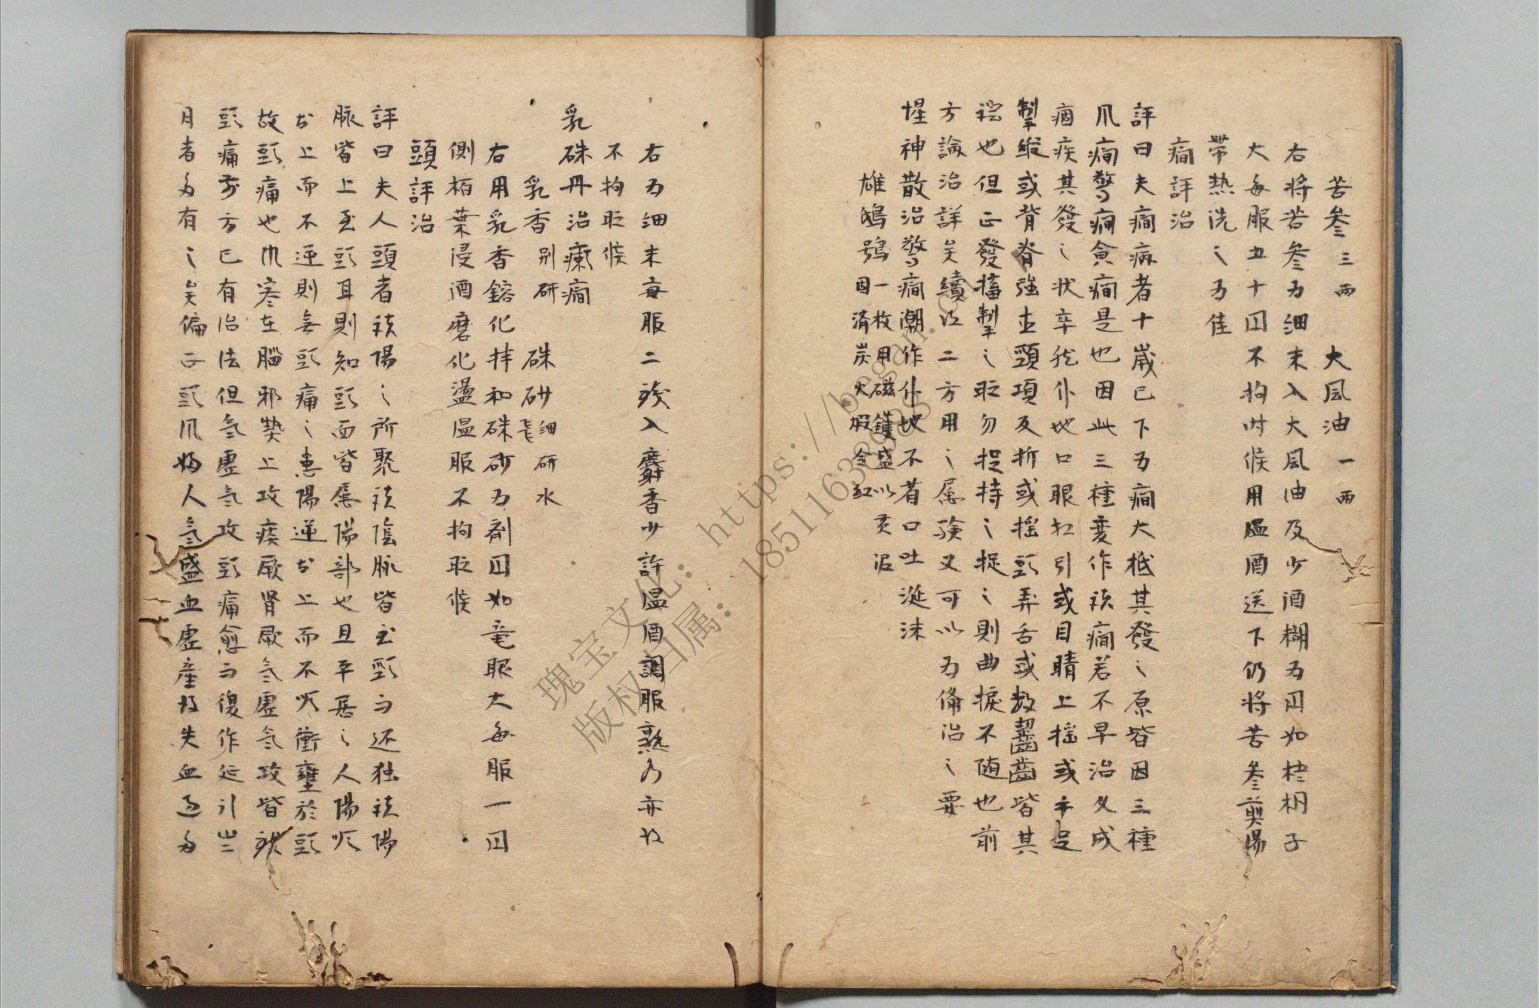 苦參三兩 大風油一兩
右將苦參为細末入大風油及少酒糊为囙如梧桐子
大每服五十囙不拘时候用温酒送下仍將苦參煎湯
帶热洗之为佳
癇評治
評曰夫癇病者十嵗已下为癇大抵其發之原皆因三種
風癇驚癇食癇是也因此三種变作诸癇若不早治久成
痼疾其發之状卒然仆地口眼相引或目睛上摇或手足
掣縱或背脊強直頸項反折或摇頭弄舌或数齧齒皆其
證也但正發搐掣之时勿捉持之捉之則曲捩不随也前
方論治詳矣續以二方用之屢驗又可以为偹治之要
惺神散治驚癇潮作仆地不省口吐涎沫
雄鴟鴞一枚用磁鑊盛以黄泥固濟炭火煅令紅
右为細末每服二錢入麝香少許温酒調服熟水亦好
不拘时候
乳硃丹治瘰癇
乳香别研 硃砂細研水飛
右用乳香鎔化拌和硃砂为剤囙如竜眼大每服一囙
側栢葉浸酒磨化盪温服不拘时候
頭評治
評曰夫人頭者诸陽之所聚诸陰脉皆至頸而还独诸陽
脉皆上至頭耳則知頭面皆属陽部也且平居之人陽顺
於上而不逆則無頭痛之患陽逆於上而不顺衝壅於頭
故頭痛也風寒在腦邪热上攻痰厥肾厥気虚気攻皆致
頭痛前方已有治法但気虚気攻頭痛愈而復作延引歲
月者多有之矣偏正頭風婦人気盛血虚産後失血过多
瑰宝文化: https://bogan.
版权归属: 18511638993